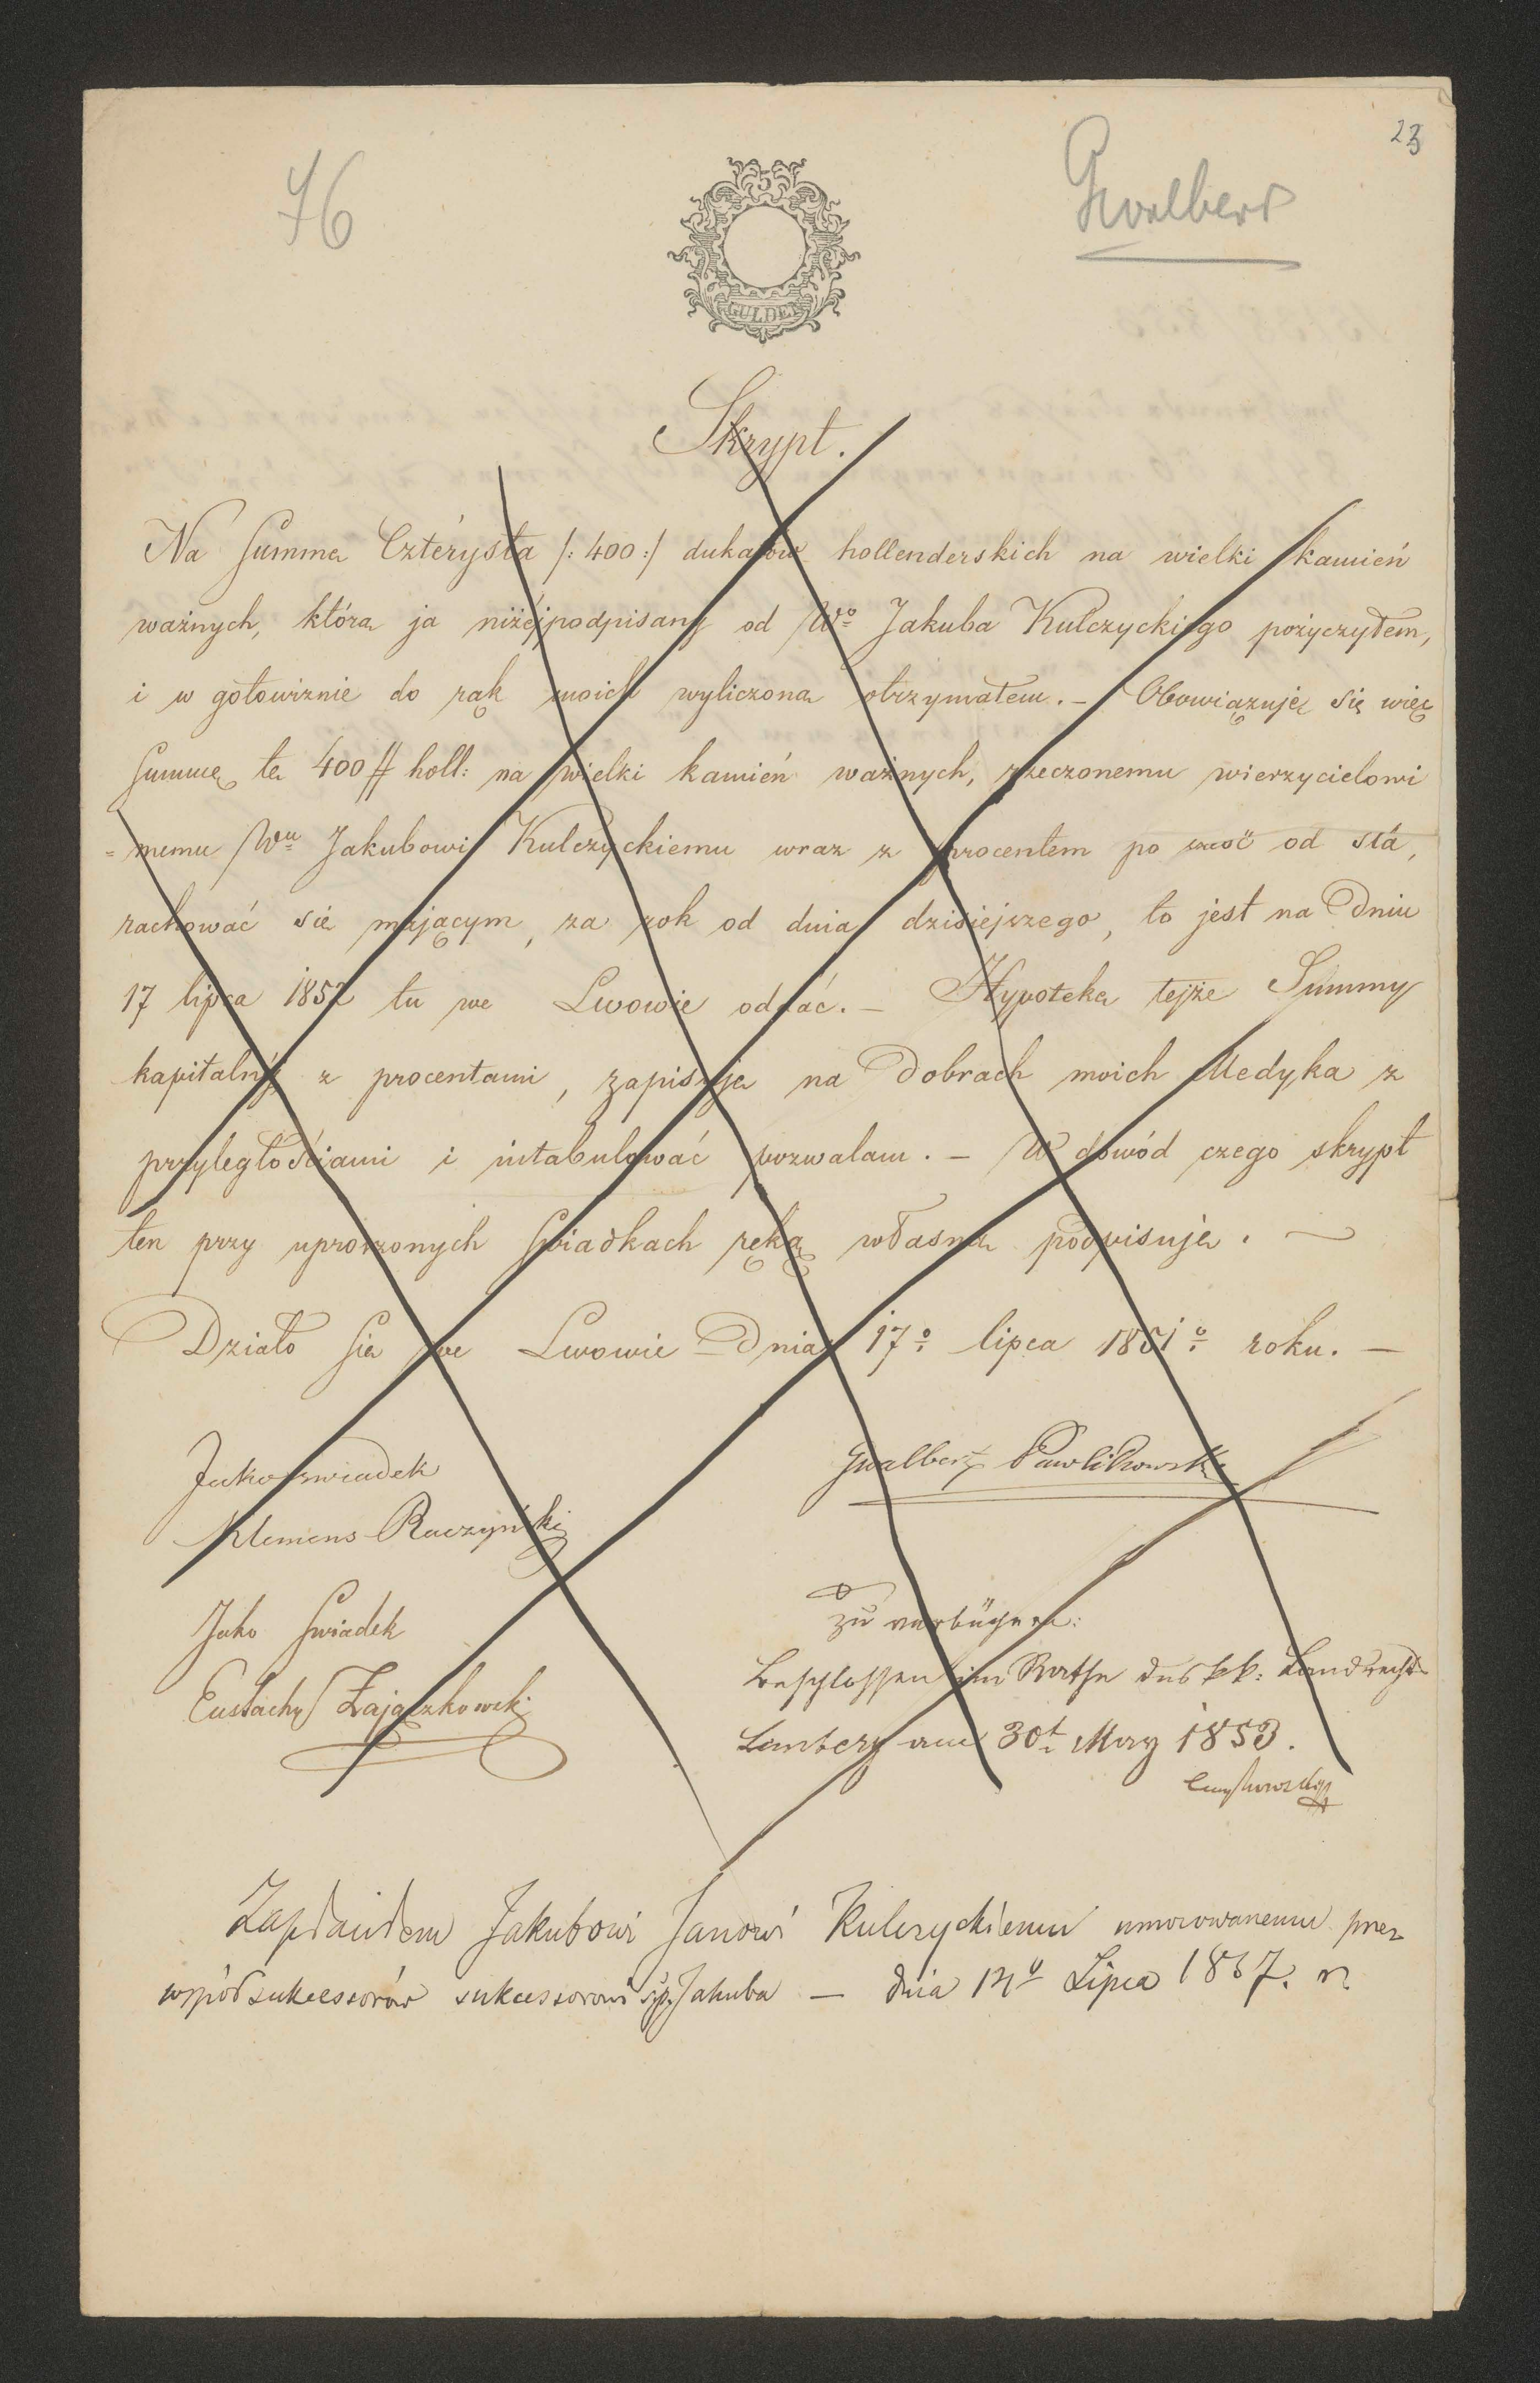 23
46
Gwalbert
5
GULDEN
Skrypt.
Na Summę Czterysta /: 400 :/ dukatów hollenderskich na wielki kamień
ważnych, którą ja niżéj podpisany od Wo Jakuba Kulczyckiego pożyczyłem,
i w gotowiznie do rąk moich wyliczoną otrzymałem. – Obowiązuję się więc
Summę tę 400 # holl: na wielki kamień ważnych, rzeczonemu wierzycielowi
= memu Wu Jakubowi Kulczyckiemu wraz z procentem po sześć od sta,
rachować się mającym, za rok od dnia dzisiejszego, to jest na Dniu
17 lipca 1852 tu we Lwowie oddać. – Hypotekę tejże Summy
kapitalnéj z procentami, zapisuję na Dobrach moich Medyka z
przyległościami i intabulować pozwalam. – W dowód czego skrypt
ten przy uproszonych Swiadkach ręką własną podpisuję. –
Działo się we Lwowie Dnia 17o lipca 1851o roku. –
Jako swiadek
Gwalbert Pawlikowski
Klemens Raczyński
Jako Swiadek
Zu verbüchern:
Eustachy Zajączkowski
Beschlossen im Rathe des kk: Landrechts
Lemberg am 30t May 1853.
Zapłaciłem Jakubowi Janowi Kulczyckiemu umocowanemu przez
współsukcessorów sukcessorowi ś.p. Jakuba — dnia Lipca 1857. r.